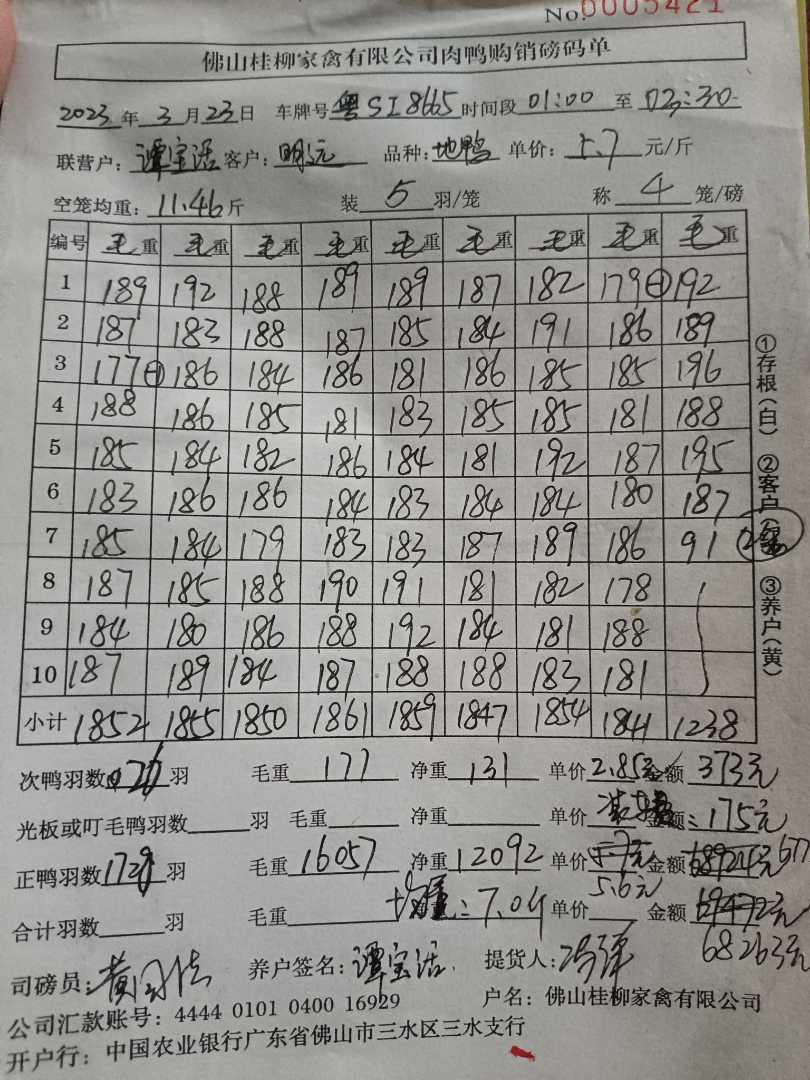 No.0005421
佛山桂柳家禽有限公司肉鸭购销磅码单
2023年3月23日 车牌号 粤SI8665 时间段 01:00 至 03:30
联营户: 谭宝活 客户: 明远 品种: 地鸭 单价: 5.7 元/斤
空笼均重: 11.46 斤 装 5 羽/笼 称 4 笼/磅
编号 毛重 毛重 毛重 毛重 毛重 毛重 毛重 毛重 毛重
1 189 192 188 189 189 187 182 179 192
2 187 183 188 187 185 184 191 186 189
3 177 186 184 186 181 186 185 185 196
4 188 186 185 181 183 185 185 181 188
5 185 184 182 186 184 181 192 187 195
6 183 186 186 184 183 184 184 180 187
7 185 184 179 183 183 187 189 186 91
8 187 185 188 190 191 181 182 178
9 184 180 186 188 192 184 181 188
10 187 189 184 187 188 188 183 181
小计 1852 1855 1850 1861 1859 1847 1854 1841 1238
①存根(白) ②客户 ③养户(黄)
次鸭羽数 26 羽 毛重 177 净重 131 单价 2.85元 金额 373元
光板或叮毛鸭羽数 羽 毛重 净重 单价 金额: 175元
正鸭羽数 羽 毛重 16057 净重 12092 单价 5.7元 金额 68924元
5.6元
合计羽数 羽 毛重 净重 均重: 7.04 单价 金额 69472元
68263元
司磅员: 养户签名: 谭宝活 提货人:
公司汇款账号: 4444 0101 0400 16929 户名: 佛山桂柳家禽有限公司
开户行: 中国农业银行广东省佛山市三水区三水支行